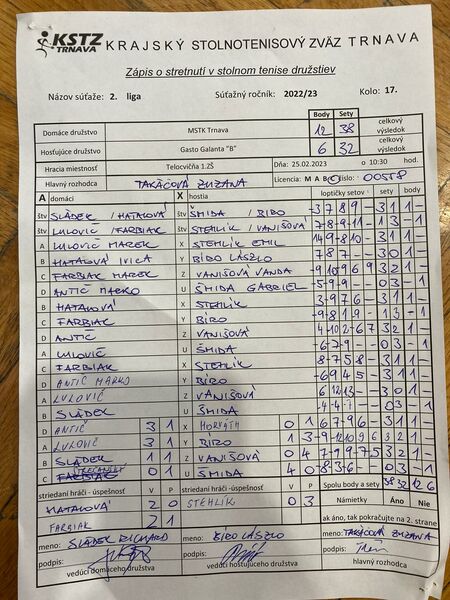 KSTZ TRNAVA KRAJSKÝ STOLNOTENISOVÝ ZVÄZ TRNAVA
Zápis o stretnutí v stolnom tenise družstiev
Názov súťaže: 2. liga Súťažný ročník: 2022/23 Kolo: 17.
Body Sety
Domáce družstvo MSTK Trnava 12 38 celkový výsledok
Hosťujúce družstvo Gasto Galanta "B" 6 32 celkový výsledok
Hracia miestnosť Telocvičňa 1.ZŠ Dňa: 25.02.2023 o 10:30 hod.
Hlavný rozhodca TAKÁČOVÁ ZUZANA Licencia: M A B C číslo: 00558
A domáci X hostia loptičky setov sety body
štv SLÁDEK / HATALOVÁ štv ŠMIDA / BÍRO -3 7 8 9 - 3 1 1 -
štv LULOVIČ / FARBIAK štv STEHLÍK / VANIŠOVÁ 1 3 - 1
A LULOVIČ MAREK X STEHLÍK EMIL 3 1 1 -
B HATALOVÁ IVICA Y BÍRO LÁSZLO 7 8 7 - - 3 0 1 -
C FARBIAK MAREK Z VANIŠOVÁ VANDA -9 10 9 6 9 3 2 1 -
D ANTIČ MARKO U ŠMIDA GABRIEL -5 -9 -9 - - 0 3 - 1
B HATALOVÁ X STEHLÍK 3 -9 7 6 - 3 1 1 -
C FARBIAK Y BÍRO -9 8 1 9 - 3 1 1 -
D ANTIČ Z VANIŠOVÁ 4 -10 2 -6 7 3 2 1 -
A LULOVIČ U ŠMIDA -6 -7 -9 - - 0 3 - 1
C FARBIAK X STEHLÍK 8 -7 5 8 - 3 1 1 -
D ANTIČ MARKO Y BÍRO -6 9 4 5 - 3 1 1 -
A LULOVIČ Z VANIŠOVÁ 6 12 13 - - 3 0 1 -
B SLÁDEK U ŠMIDA -4 -4 -1 - - 0 3 - 1
D ANTIČ 3 1 X HORVÁTH 0 1 6 7 9 6 - 3 1 1 -
A LULOVIČ 3 1 Y BÍRO 1 3 3 2 1 -
B SLÁDEK 1 1 Z VANIŠOVÁ 0 4
C 0 1 U ŠMIDA 4 0
striedaní hráči - úspešnosť V P striedaní hráči - úspešnosť V P Spolu body a sety 38 32 12 6
HATALOVÁ 2 0 STEHLÍK 0 3 Námietky Áno Nie
FARBIAK 2 1 ak áno, tak pokračujte na 2. strane
meno: SLÁDEK RICHARD meno: BÍRO LÁSZLO meno: TAKÁČOVÁ ZUZANA
podpis: podpis: podpis:
vedúci domáceho družstva vedúci hosťujúceho družstva hlavný rozhodca